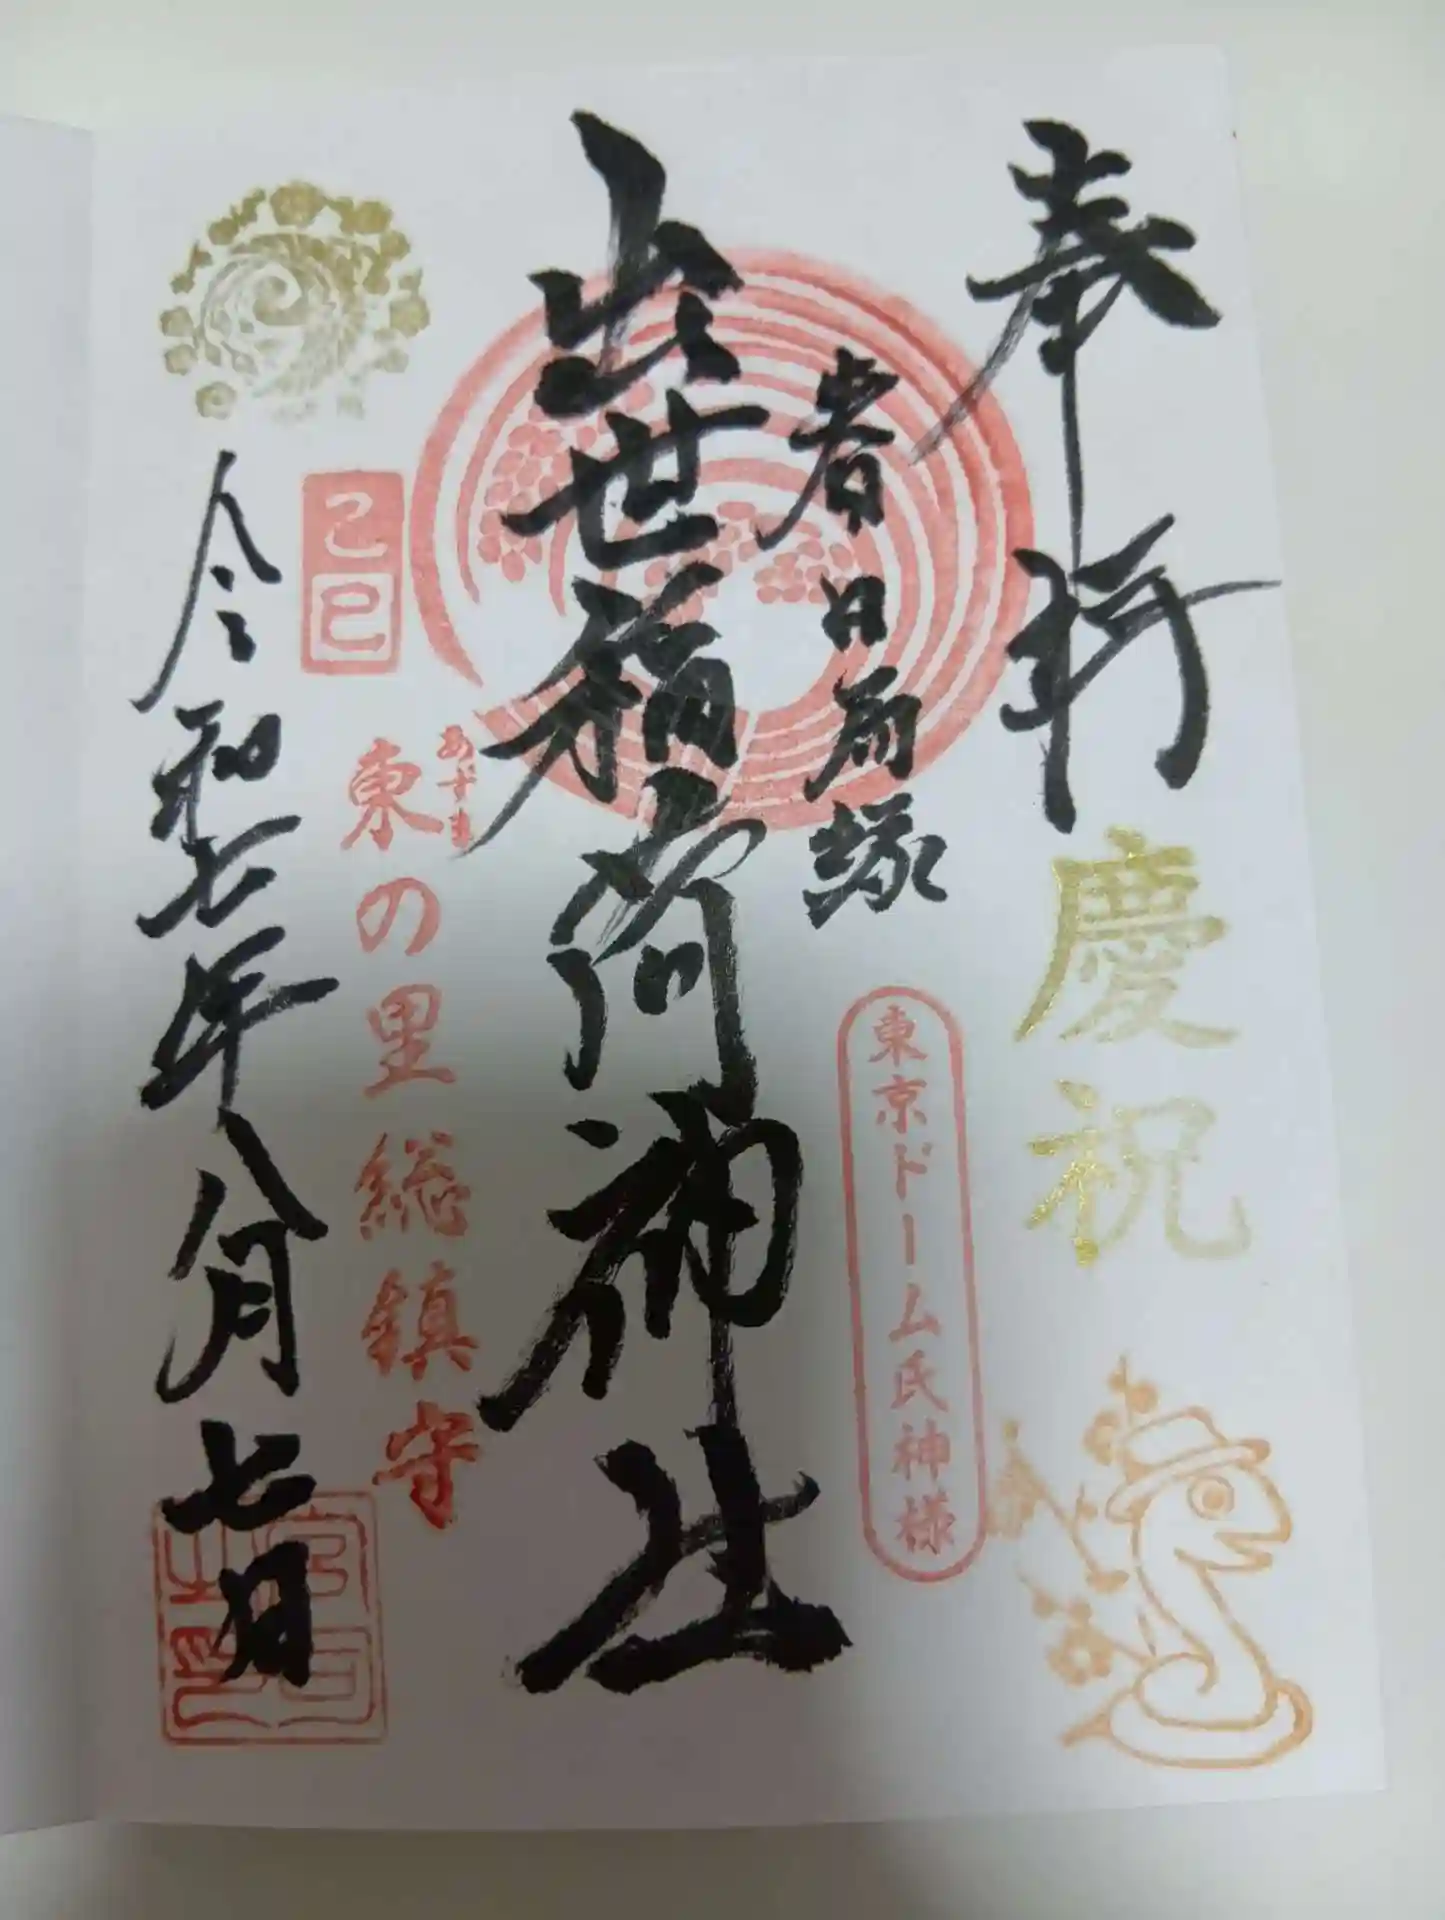 奉拝
慶祝
春日局縁
東京ドーム氏神様
出世稲荷神社
あずま
東の里総鎮守
己巳
令和七年八月七日